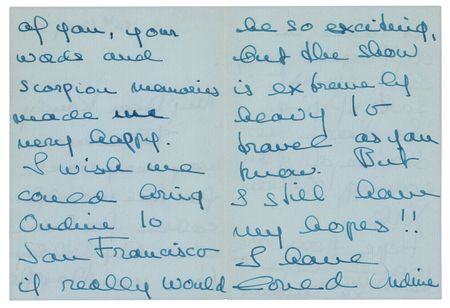 of you, your
words and
scorpion memories
made me
very happy.
I wish we
could bring
Ondine to
San Francisco
it really would
be so exciting,
but the show
is extremely
heavy to
travel as you
know. But
I still have
my hopes!!
I have
loved Ondine